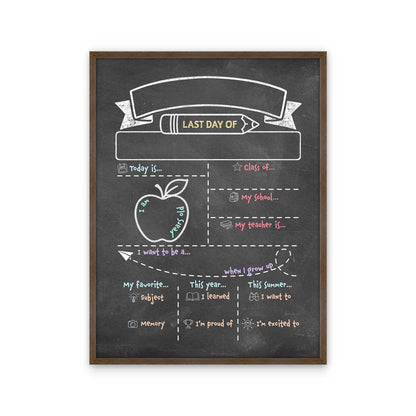 LAST DAY OF
Today is...
Class of...
My school...
I am
years old
My teacher is...
I want to be a...
when I grow up
My favorite... This year... This summer...
Subject I learned I want to
Memory I'm proud of I'm excited to